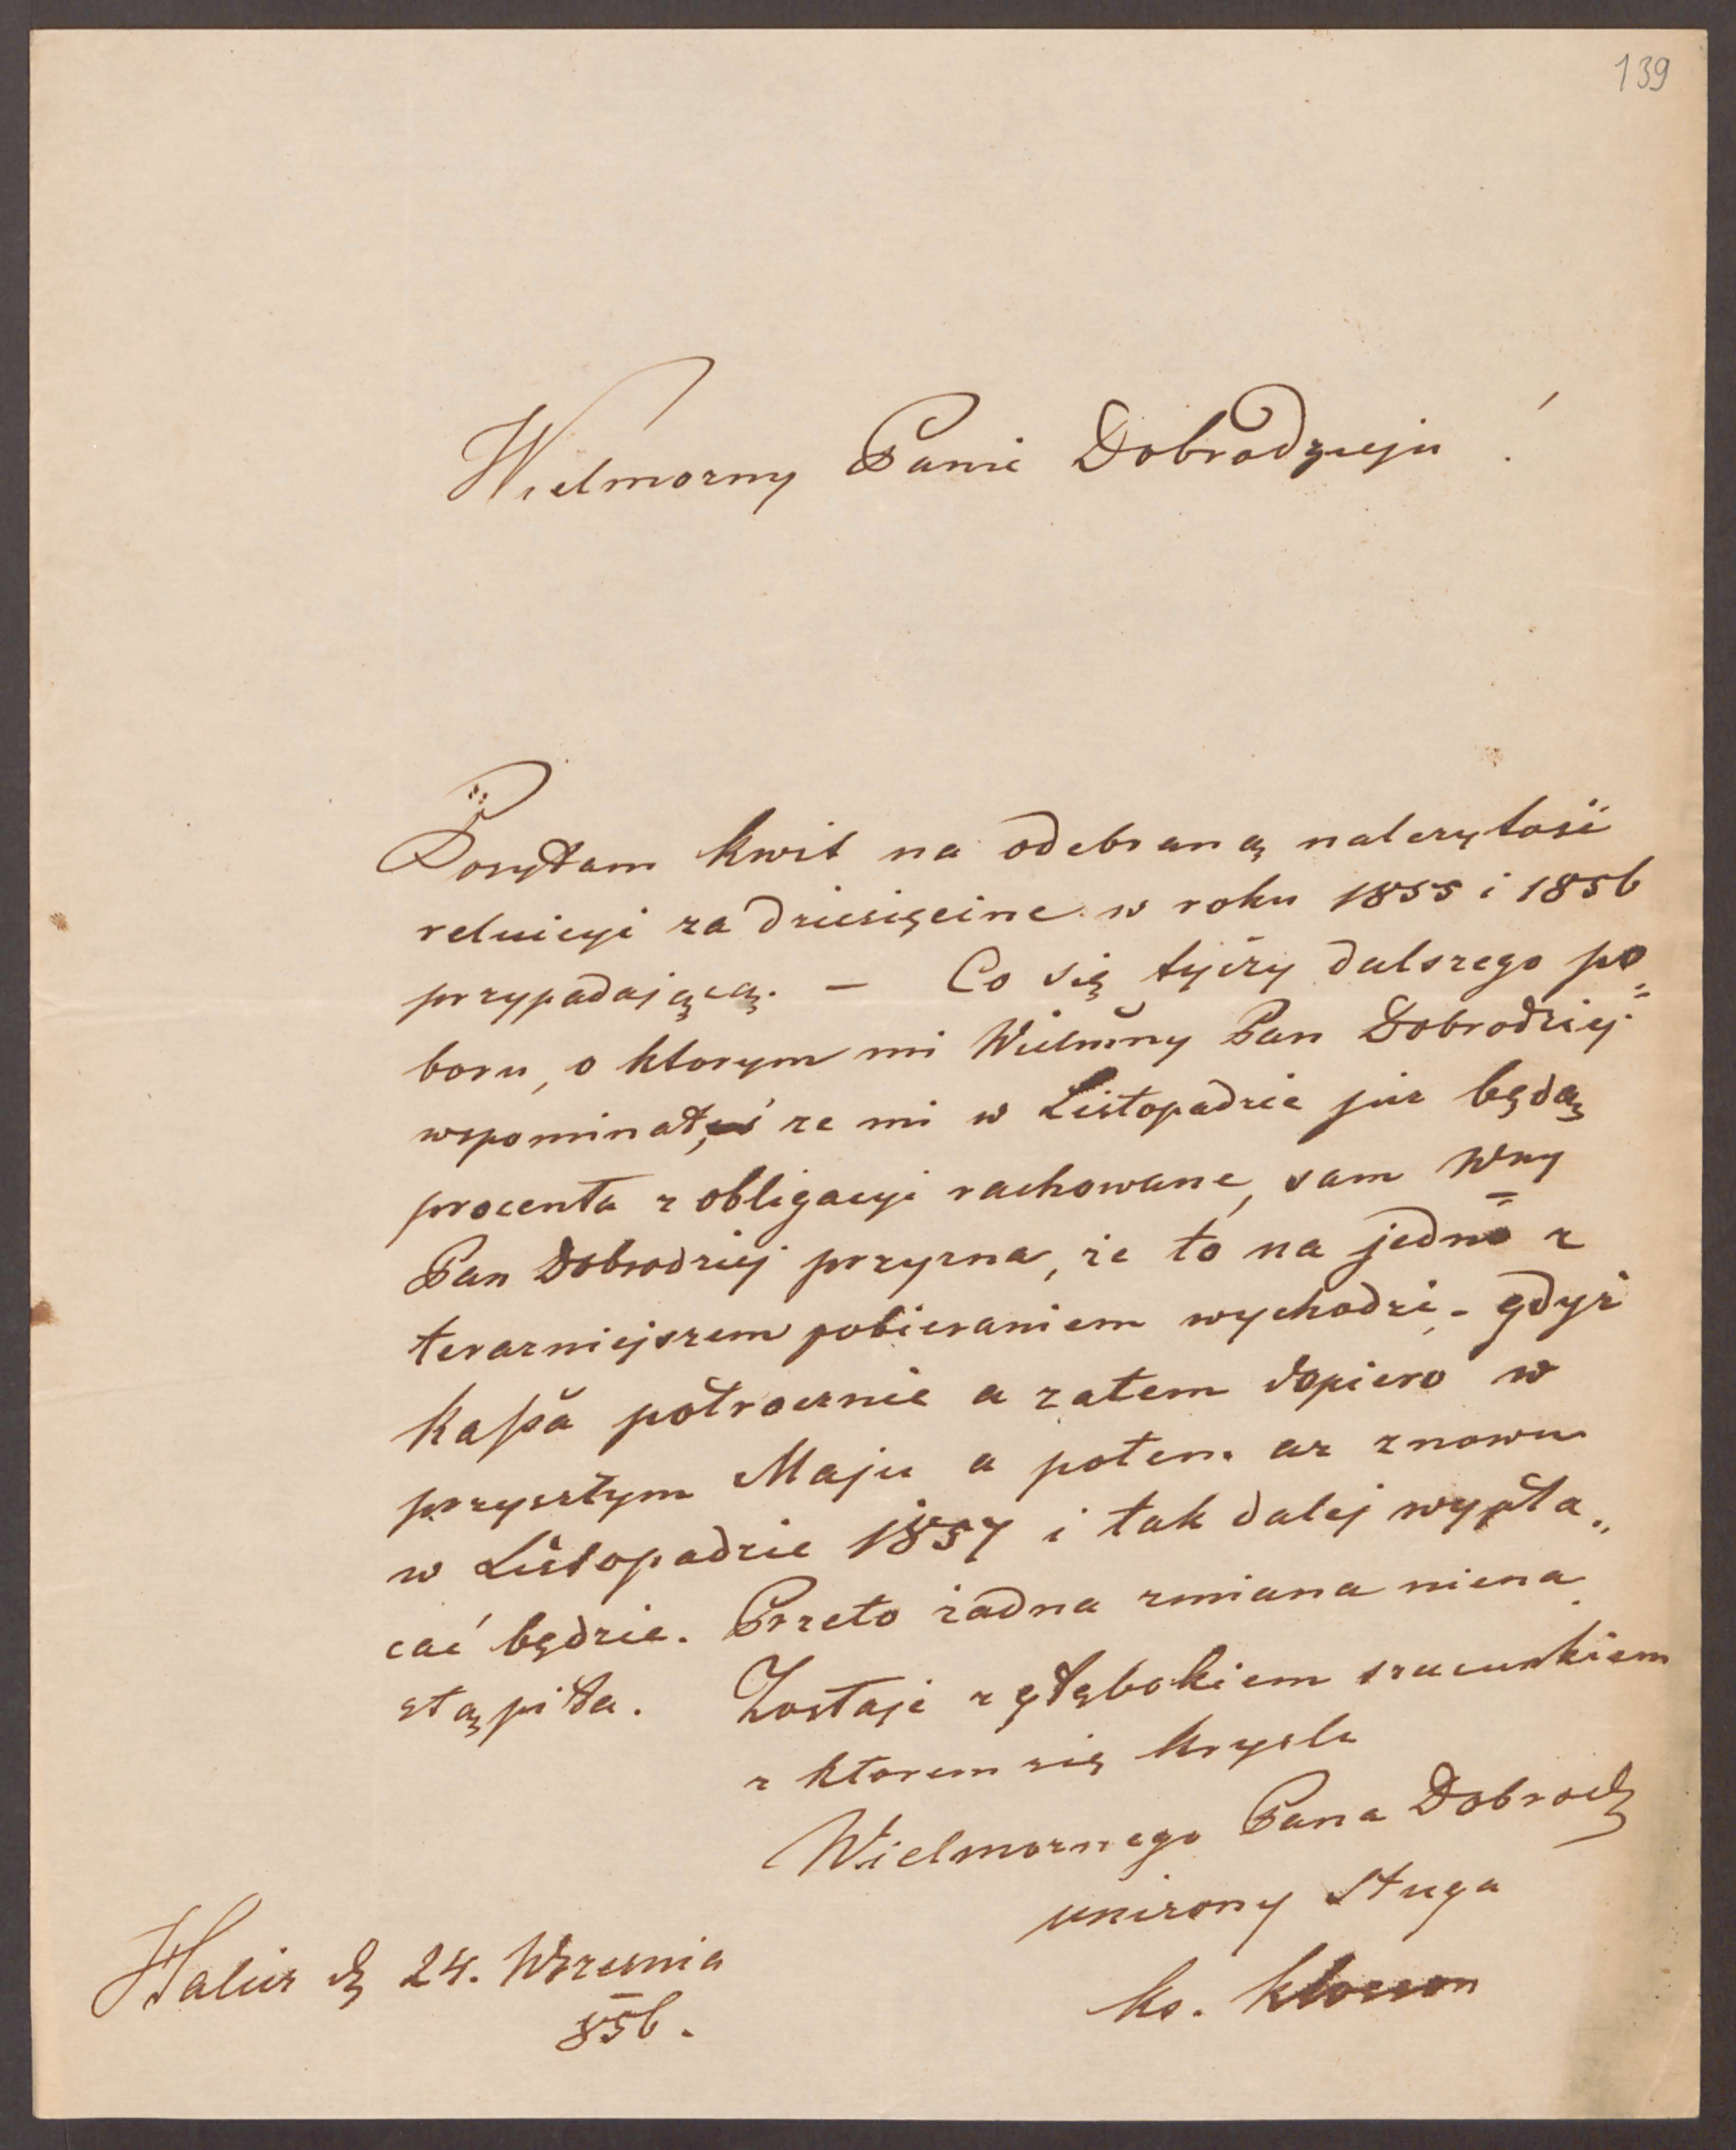 139
Wielmozny Panie Dobrodzieju !
Posyłam kwit na odebraną nalezytość
reluicyi za dziesięcine w roku 1855 i 1856
przypadającą. — Co się tyczy dalszego po=
boru, o ktorym mi Wielmny Pan Dobrodziej
wspominał, ze mi w Listopadzie juz będą
procenta z obligacyi rachowane, sam Wny
Pan Dobrodziej przyzna, że to na jedno z
terazniejszem pobieraniem wychodzi, - gdyż
Kassa półrocznie a zatem dopiero w
przyszłym Maju a potem az znowu
w Listopadzie 1857 i tak dalej wypła„
cać będzie. Przeto żadna zmiana niena
stąpiła. Zostaję z głębokiem szacunkiem
z ktorem się kryslę
Wielmoznego Pana Dobrodz
unizony sługa
ks. Klosson
Halicz d 24. Wrzesnia
856.